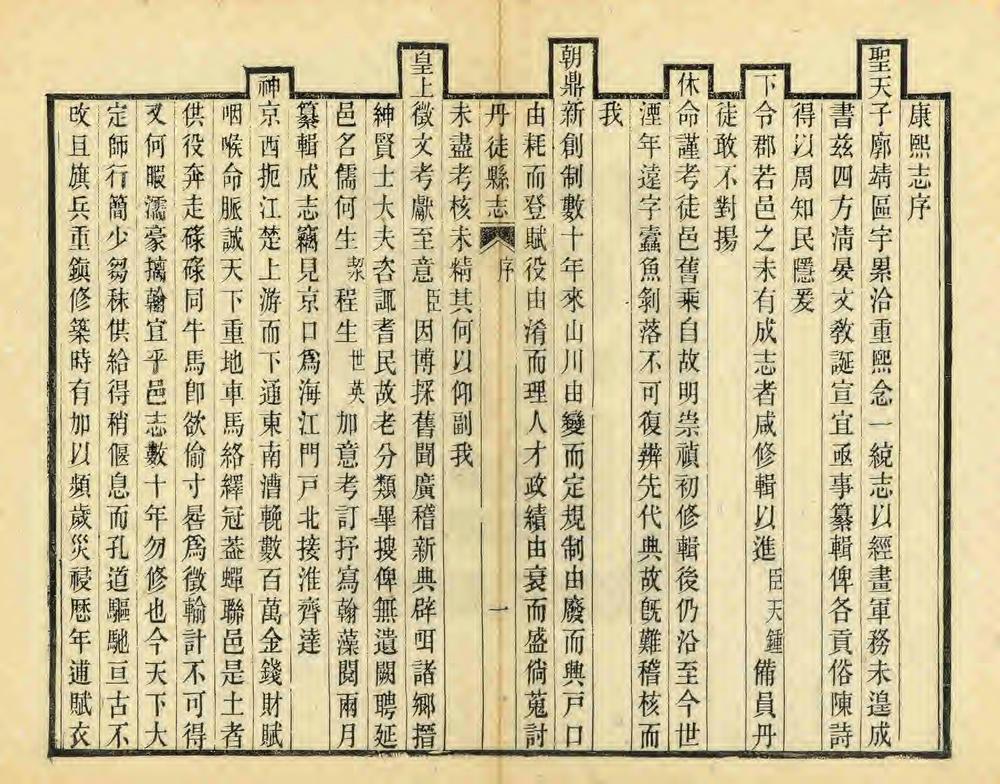 康熙志序
聖天子廓靖區宇累洽重熙念一統志以經畫軍務未遑成
書玆四方淸晏文敎誕宣宜亟事纂輯俾各貢俗陳詩
得以周知民隱爰
下令郡若邑之未有成志者咸修輯以進臣天鍾備員丹
徒敢不對揚
休命謹考徒邑舊乘自故明崇禎初修輯後仍沿至今世
湮年遠字蠹魚剝落不可復辨先代典故旣難稽核而
我
朝鼎新創制數十年來山川由變而定規制由廢而興戸口
由耗而登賦役由淆而理人才政績由衰而盛倘蒐討
丹徒縣志 序 一
未盡考核未精其何以仰副我
皇上徵文考獻至意臣因博採舊聞廣稽新典辟咡諸鄉搢
紳賢士大夫咨諏耆民故老分類畢搜俾無遺闕聘延
邑名儒何生洯程生世英加意考訂抒寫翰藻閱兩月
纂輯成志竊見京口爲海江門戸北接淮齊達
神京西扼江楚上游而下通東南漕輓數百萬金錢財賦
咽喉命脈誠天下重地車馬絡繹冠葢蟬聯邑是土者
供役奔走碌碌同牛馬卽欲偷寸晷爲徵輸計不可得
又何暇濡豪摛翰宜乎邑志數十年勿修也今天下大
定師行簡少芻秣供給得稍偃息而孔道驅馳亘古不
改且旗兵重鎭修築時有加以頻歲災祲歷年逋賦衣